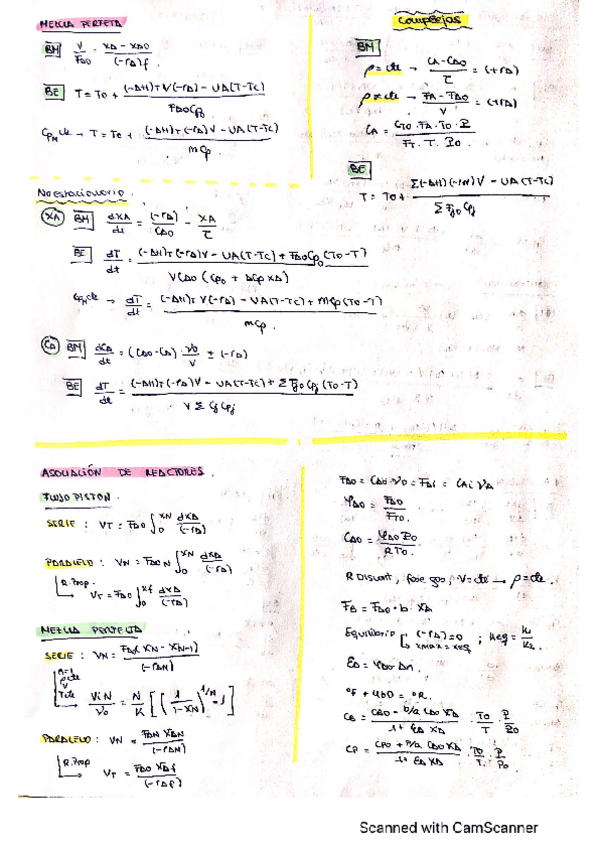 MEZCLA PERFECTA
BM V/FA0 = XA - XA0 / (-rA)f.
BE T = T0 + (-ΔH)T V(-rA) - UA(T-TC) / FA0Cp0
CpM cte → T = T0 + (-ΔH)T (-rA)V - UA(T-TC) / mCp.
Complejas
BM
ρ = cte → CA - CA0 / τ = (+rA)
ρ ≠ cte → FA - FA0 / V = (+rA)
CA = CT0 · FA · T0 · P / FT · T · P0
BE
T = T0 + Σ(-ΔH)(-rN)V - UA(T-TC) / Σ Fj0 Cpj
No estacionario.
XA BM dXA/dt = (-rA)/CA0 - XA/τ
BE dT/dt = (-ΔH)T(-rA)V - UA(T-TC) + FA0Cp0(T0-T) / VCA0 (Cp0 + ΔCp XA)
CpM cte → dT/dt = (-ΔH)T V(-rA) - UA(T-TC) + mCp(T0-T) / mCp.
CA BM dCA/dt = (CA0 - CA) · V0/V ± (-rA)
BE dT/dt = (-ΔH)T(-rA)V - UA(T-TC) + Σ Fj0 Cpj (T0-T) / V Σ Cj Cpj
ASOCIACIÓN DE REACTORES.
FLUJO PISTON.
SERIE : VT = FA0 ∫0^XN dXA/(-rA)
PARALELO : VN = FA0N ∫0^XN dXA/(-rA)
R. Prop. → VT = FA0 ∫0^Xf dXA/(-rA)
MEZCLA PERFECTA
SERIE : VN = FA0( XN - XN-1) / (-rAN)
n=1
ρ cte
V
T cte
→ ViN/V0 = N/K [ ( 1/1-XN )^1/N - 1 ]
PARALELO : VN = FAN XAN / (-rAN)
R. Prop → VT = FA0 XAf / (-rAf)
FA0 = CA0 · V0 = FAi = CAi VA
YA0 = FA0 / FT0.
CA0 = YA0 P0 / R T0.
R Discont, fase gas, V=cte → ρ = cte.
FB = FA0 · b · XA
Equilibrio (-rA)=0 ; Keq = K1/K2.
Xmax = Xeq
EA = YA0 Δn.
ºF + 460 = ºR.
CB = CB0 - b/a CA0 XA / 1 + EA XA · T0/T · P/P0
CP = CP0 + P/a CA0 XA / 1+ EA XA · T0/T · P/P0.
Scanned with CamScanner